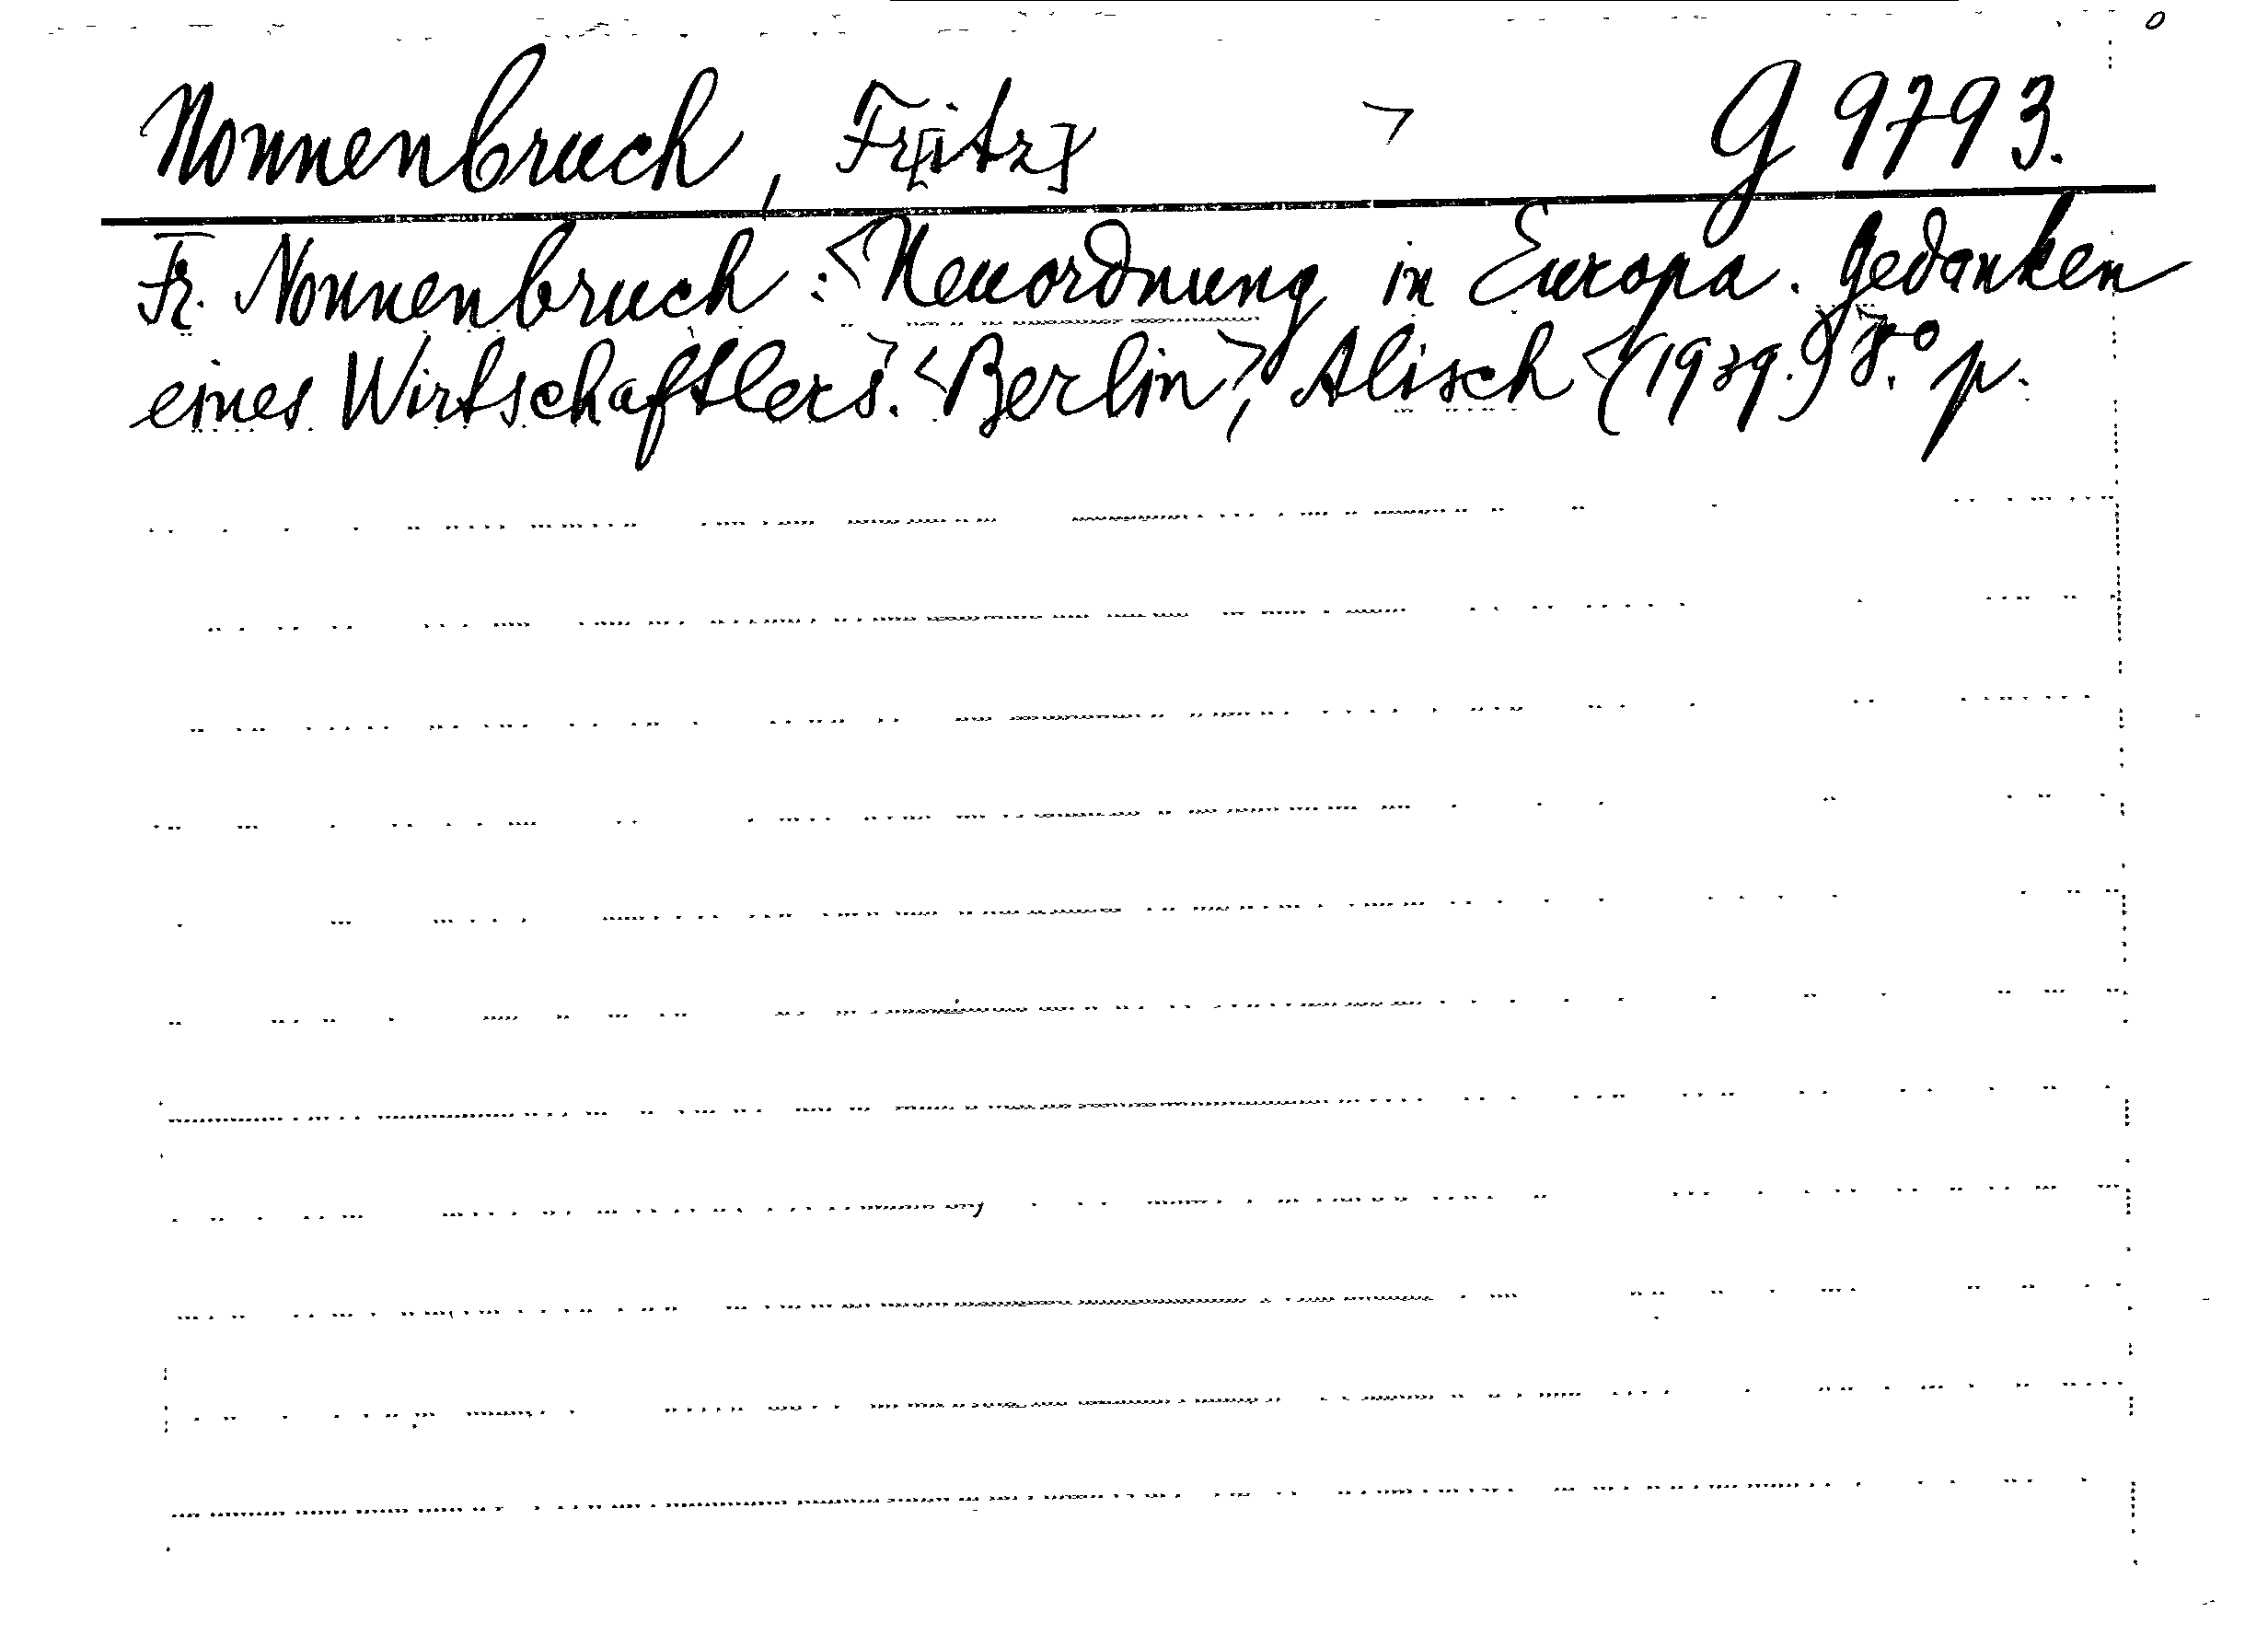 Nonnenbruch, Fr[itz] > G 9793.
Fr. Nonnenbruch: <Neuordnung in Europa. Gedanken
eines Wirtschaftlers>. <Berlin>, Alisch <(1939.)> 8.° p.